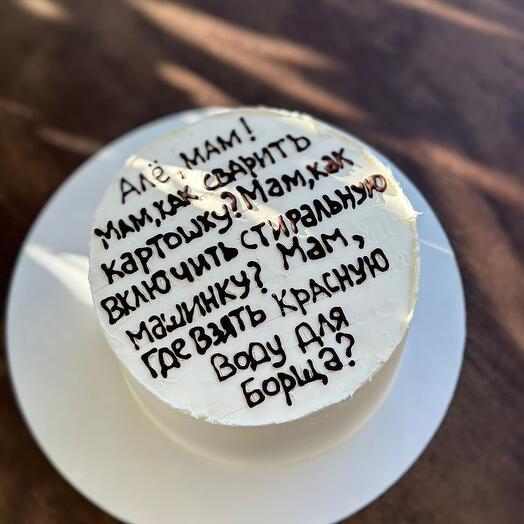 Алё, мам!
Мам, как сварить
картошку? Мам, как
включить стиральную
машинку? Мам,
где взять красную
воду для
борща?